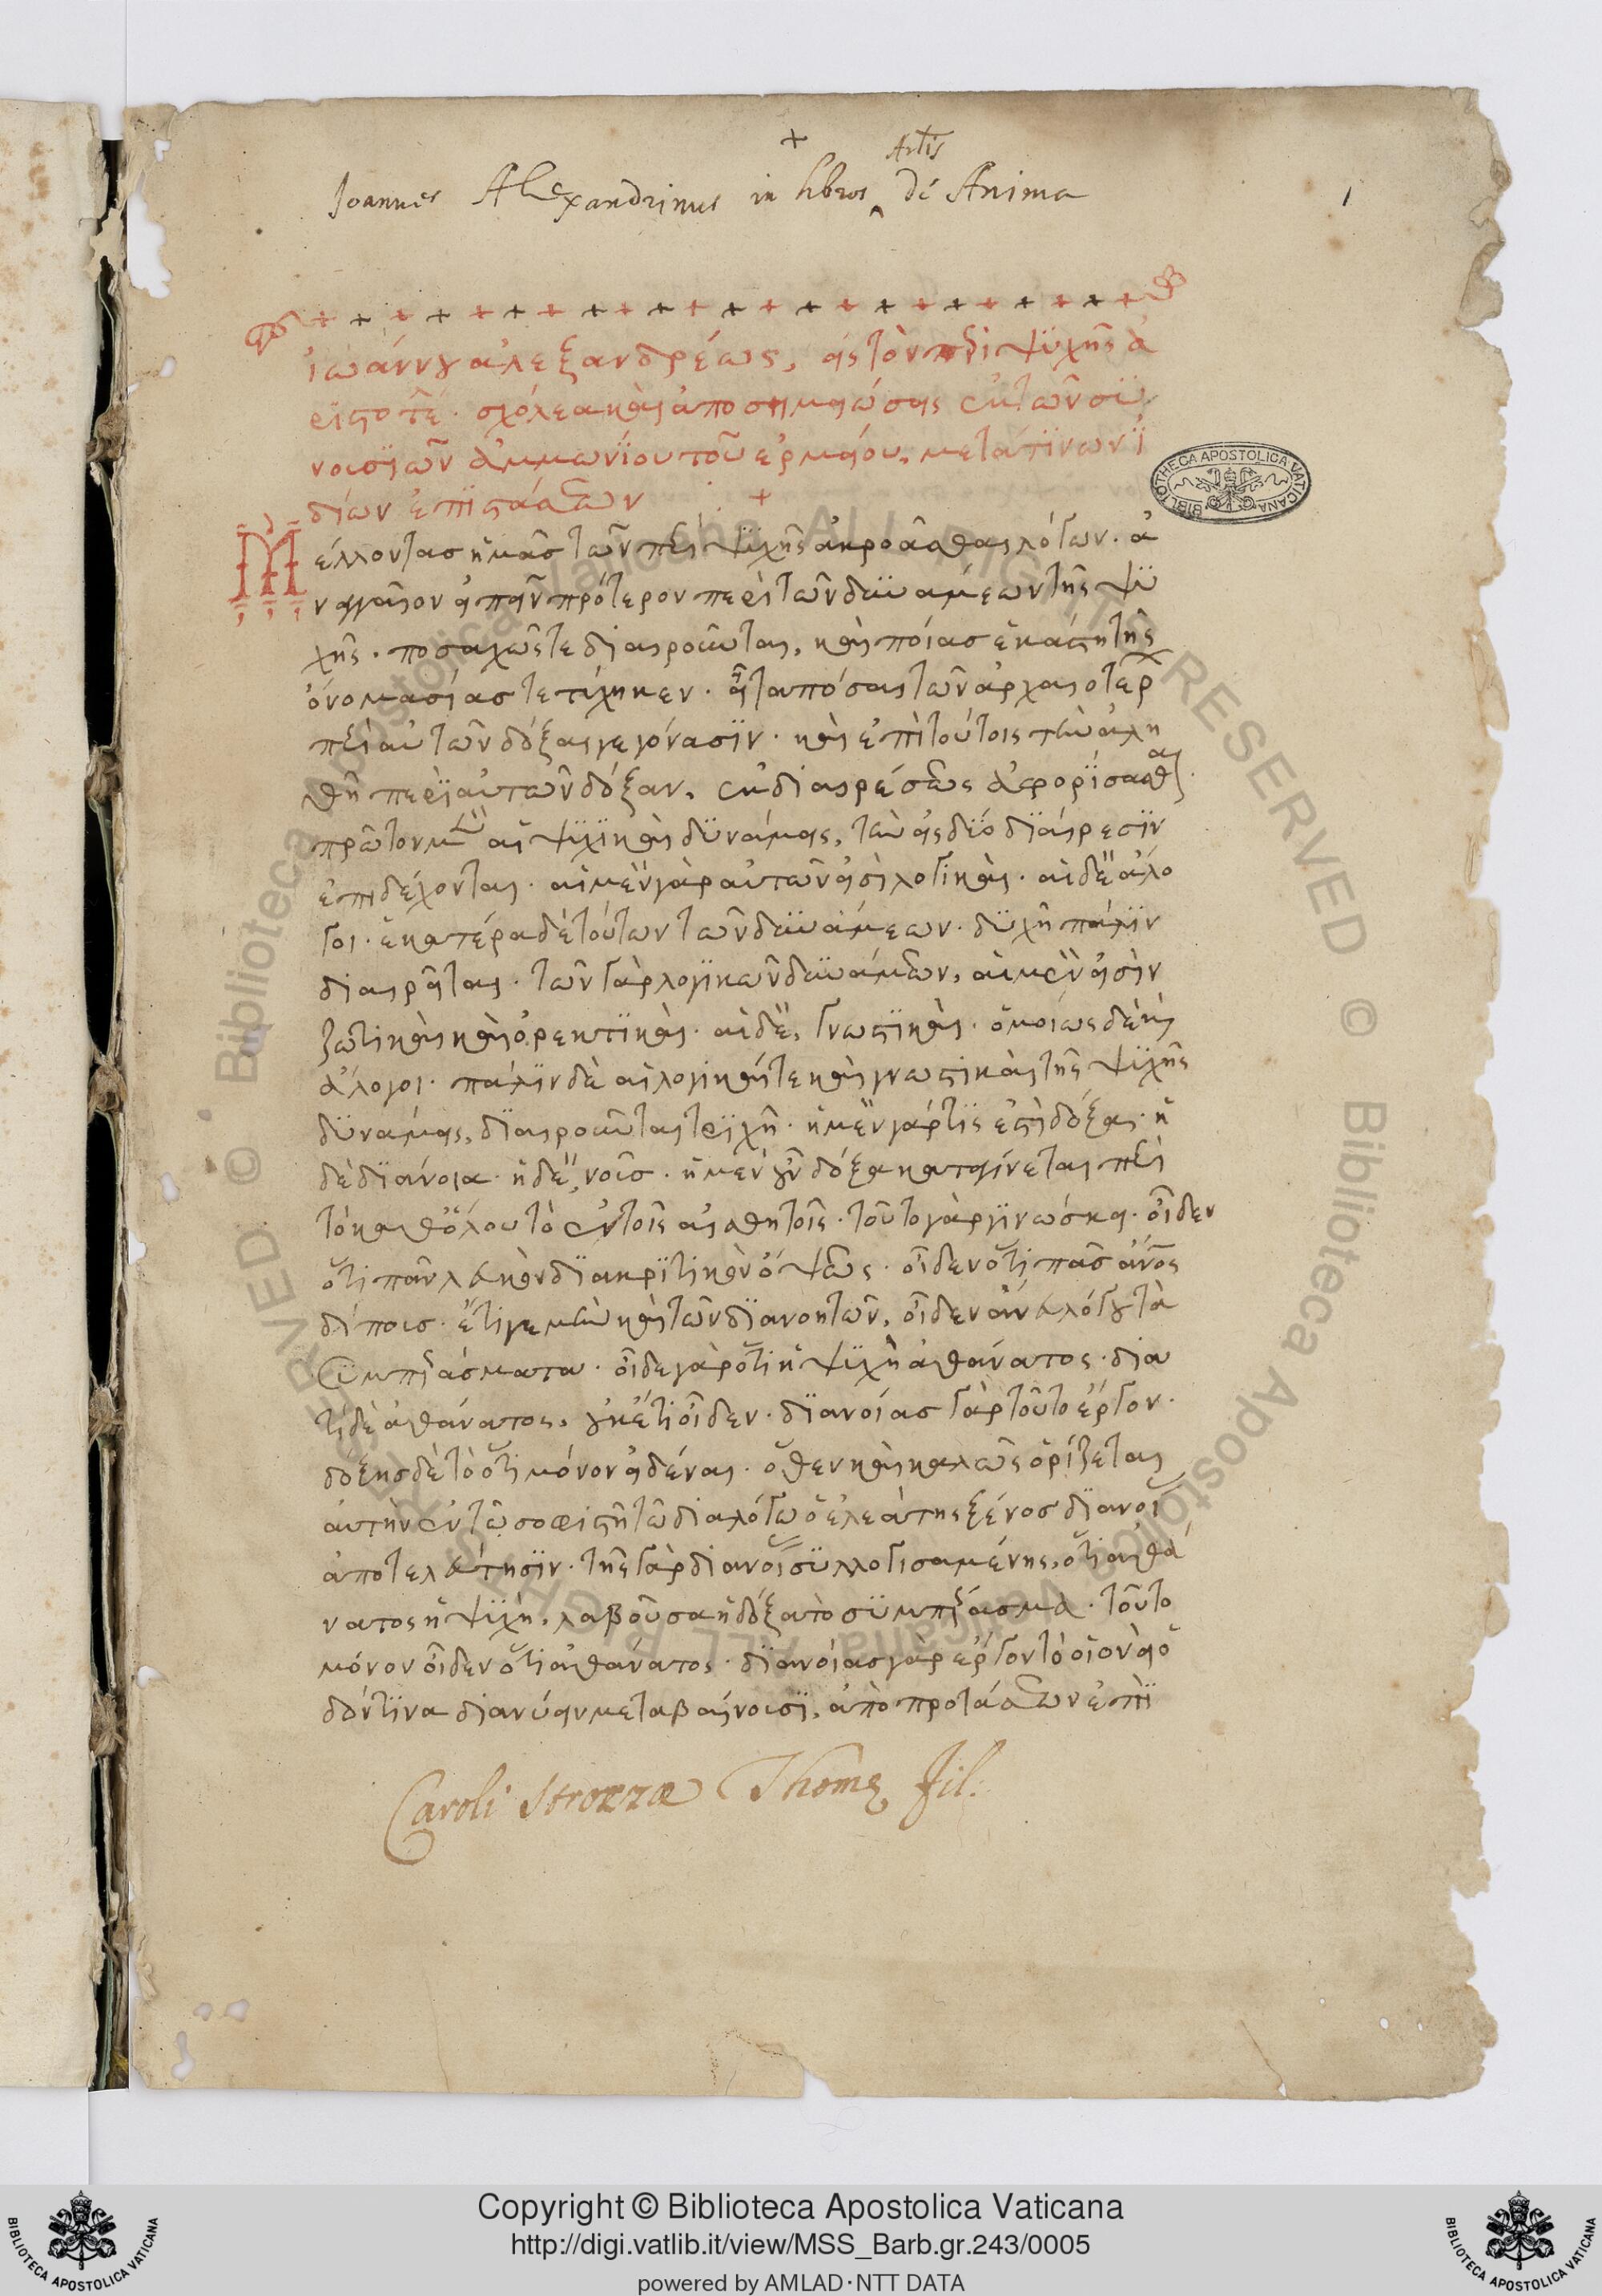 +
Artis
Joannes Alexandrinus in libros ‸ de Anima
1
ἰωάννου αλεξανδρέως, εἰς τὸν περὶ ψυχῆς ἀ
ριστοτέ· σχόλεα καὶ ἀποσημειώσεις ἐκ τῶν συ
νουσιῶν ἀμμωνίου τοῦ ἑρμείου, μετά τινων ἰ
δίων ἐπιστάσεων +
Μέλλοντας ἡμᾶς τῶν περὶ ψυχῆς ἀκροᾶσθαι λόγων· ἀ
ναγκαῖον εἰπεῖν πρότερον περὶ τῶν δυνάμεων τῆς ψυ
χῆς· ποσαχῶς τε διαιροῦνται, καὶ ποίας ἑκάστη τῆς
ὀνομασίας τετύχηκεν· εἶτα πόσαι τῶν ἀρχαιοτέρ
περὶ αὐτῶν δόξαι γεγόνασιν· καὶ ἐπὶ τούτοις τὴν ἀλη
θῆ περὶ αὐτῶν δόξαν, ἐκ διαιρέσεως ἀφορίσασθαι·
πρῶτον μὲν αἱ ψυχικαὶ δυνάμεις, τὴν εἰς δύο διαίρεσιν
ἐπιδέχονται· αἱ μὲν γὰρ αὐτῶν εἰσὶ λογικαὶ· αἱ δὲ ἄλο
γοι· ἑκατέρα δὲ τούτων τῶν δυνάμεων· δυχῆ πάλιν
διαιρεῖται· τῶν γὰρ λογικῶν δυνάμεων, αἱ μὲν εἰσὶν
ζωτικαὶ καὶ ὀρεκτικαὶ· αἱ δὲ, γνωστικαὶ· ὁμοίως δὲ καὶ
ἄλογοι· πάλιν δὲ αἱ λογικαί τε καὶ γνωστικαὶ τῆς ψυχῆς
δυνάμεις, διαιροῦνται τριχῆ· ἡ μὲν γάρ τις ἐστὶ δόξα· ἡ
δὲ διάνοια· ἡ δὲ, νοῦς· ἡ μὲν οὖν δόξα καταγίνεται περὶ
τὸ καθόλου τὸ ἐν τοῖς αἰσθητοῖς· τοῦτο γὰρ γινώσκει· οἶδεν
ὅτι πᾶν λευκὸν διακριτικὸν ὄψεως· οἶδεν ὅτι πᾶς ἄνος
δίπους· ἔτι γε μὴν καὶ τῶν διανοητῶν, οἶδεν ἄνευ λόγου τὰ
συμπεράσματα· οἶδε γὰρ ὅτι ἡ ψυχὴ ἀθάνατος· δια
τί δὲ ἀθάνατος, οὐκέτι οἶδεν· διανοίας γὰρ τοῦτο ἔργον·
δοξης δὲ τὸ ὅτι μόνον εἰδέναι· ὅθεν καὶ καλῶς ὁρίζεται
αὐτὴν ἐν τῷ σοφιστῆ τῶ διαλόγω ὁ ἐλεάτης ξένος διανοί
ἀποτελεύτησιν· τῆς γὰρ διανοί συλλογισαμένης, ὅτι ἀθά
νατος ἡ ψυχὴ, λαβοῦσα ἡ δόξα τὸ συμπέρασμα· τοῦτο
μόνον οἶδεν ὅτι ἀθάνατος· διανοίας γὰρ ἔργον τὸ οἱονεὶ ὁ
δόν τινα διανύειν μεταβαίνουσι, ἀπὸ προτάσεων ἐπὶ
Caroli Strozzæ Thomę fil:
BIBLIOTHECA APOSTOLICA VATICANA
© Biblioteca Apostolica Vaticana ALL RIGHTS RESERVED
© Biblioteca Apostolica Vaticana ALL RIGHTS RESERVED
Copyright © Biblioteca Apostolica Vaticana
http://digi.vatlib.it/view/MSS_Barb.gr.243/0005
powered by AMLAD·NTT DATA
BIBLIOTECA APOSTOLICA VATICANA
BIBLIOTECA APOSTOLICA VATICANA